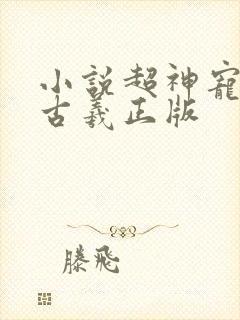 小説超神寵
古羲正版
滕飛